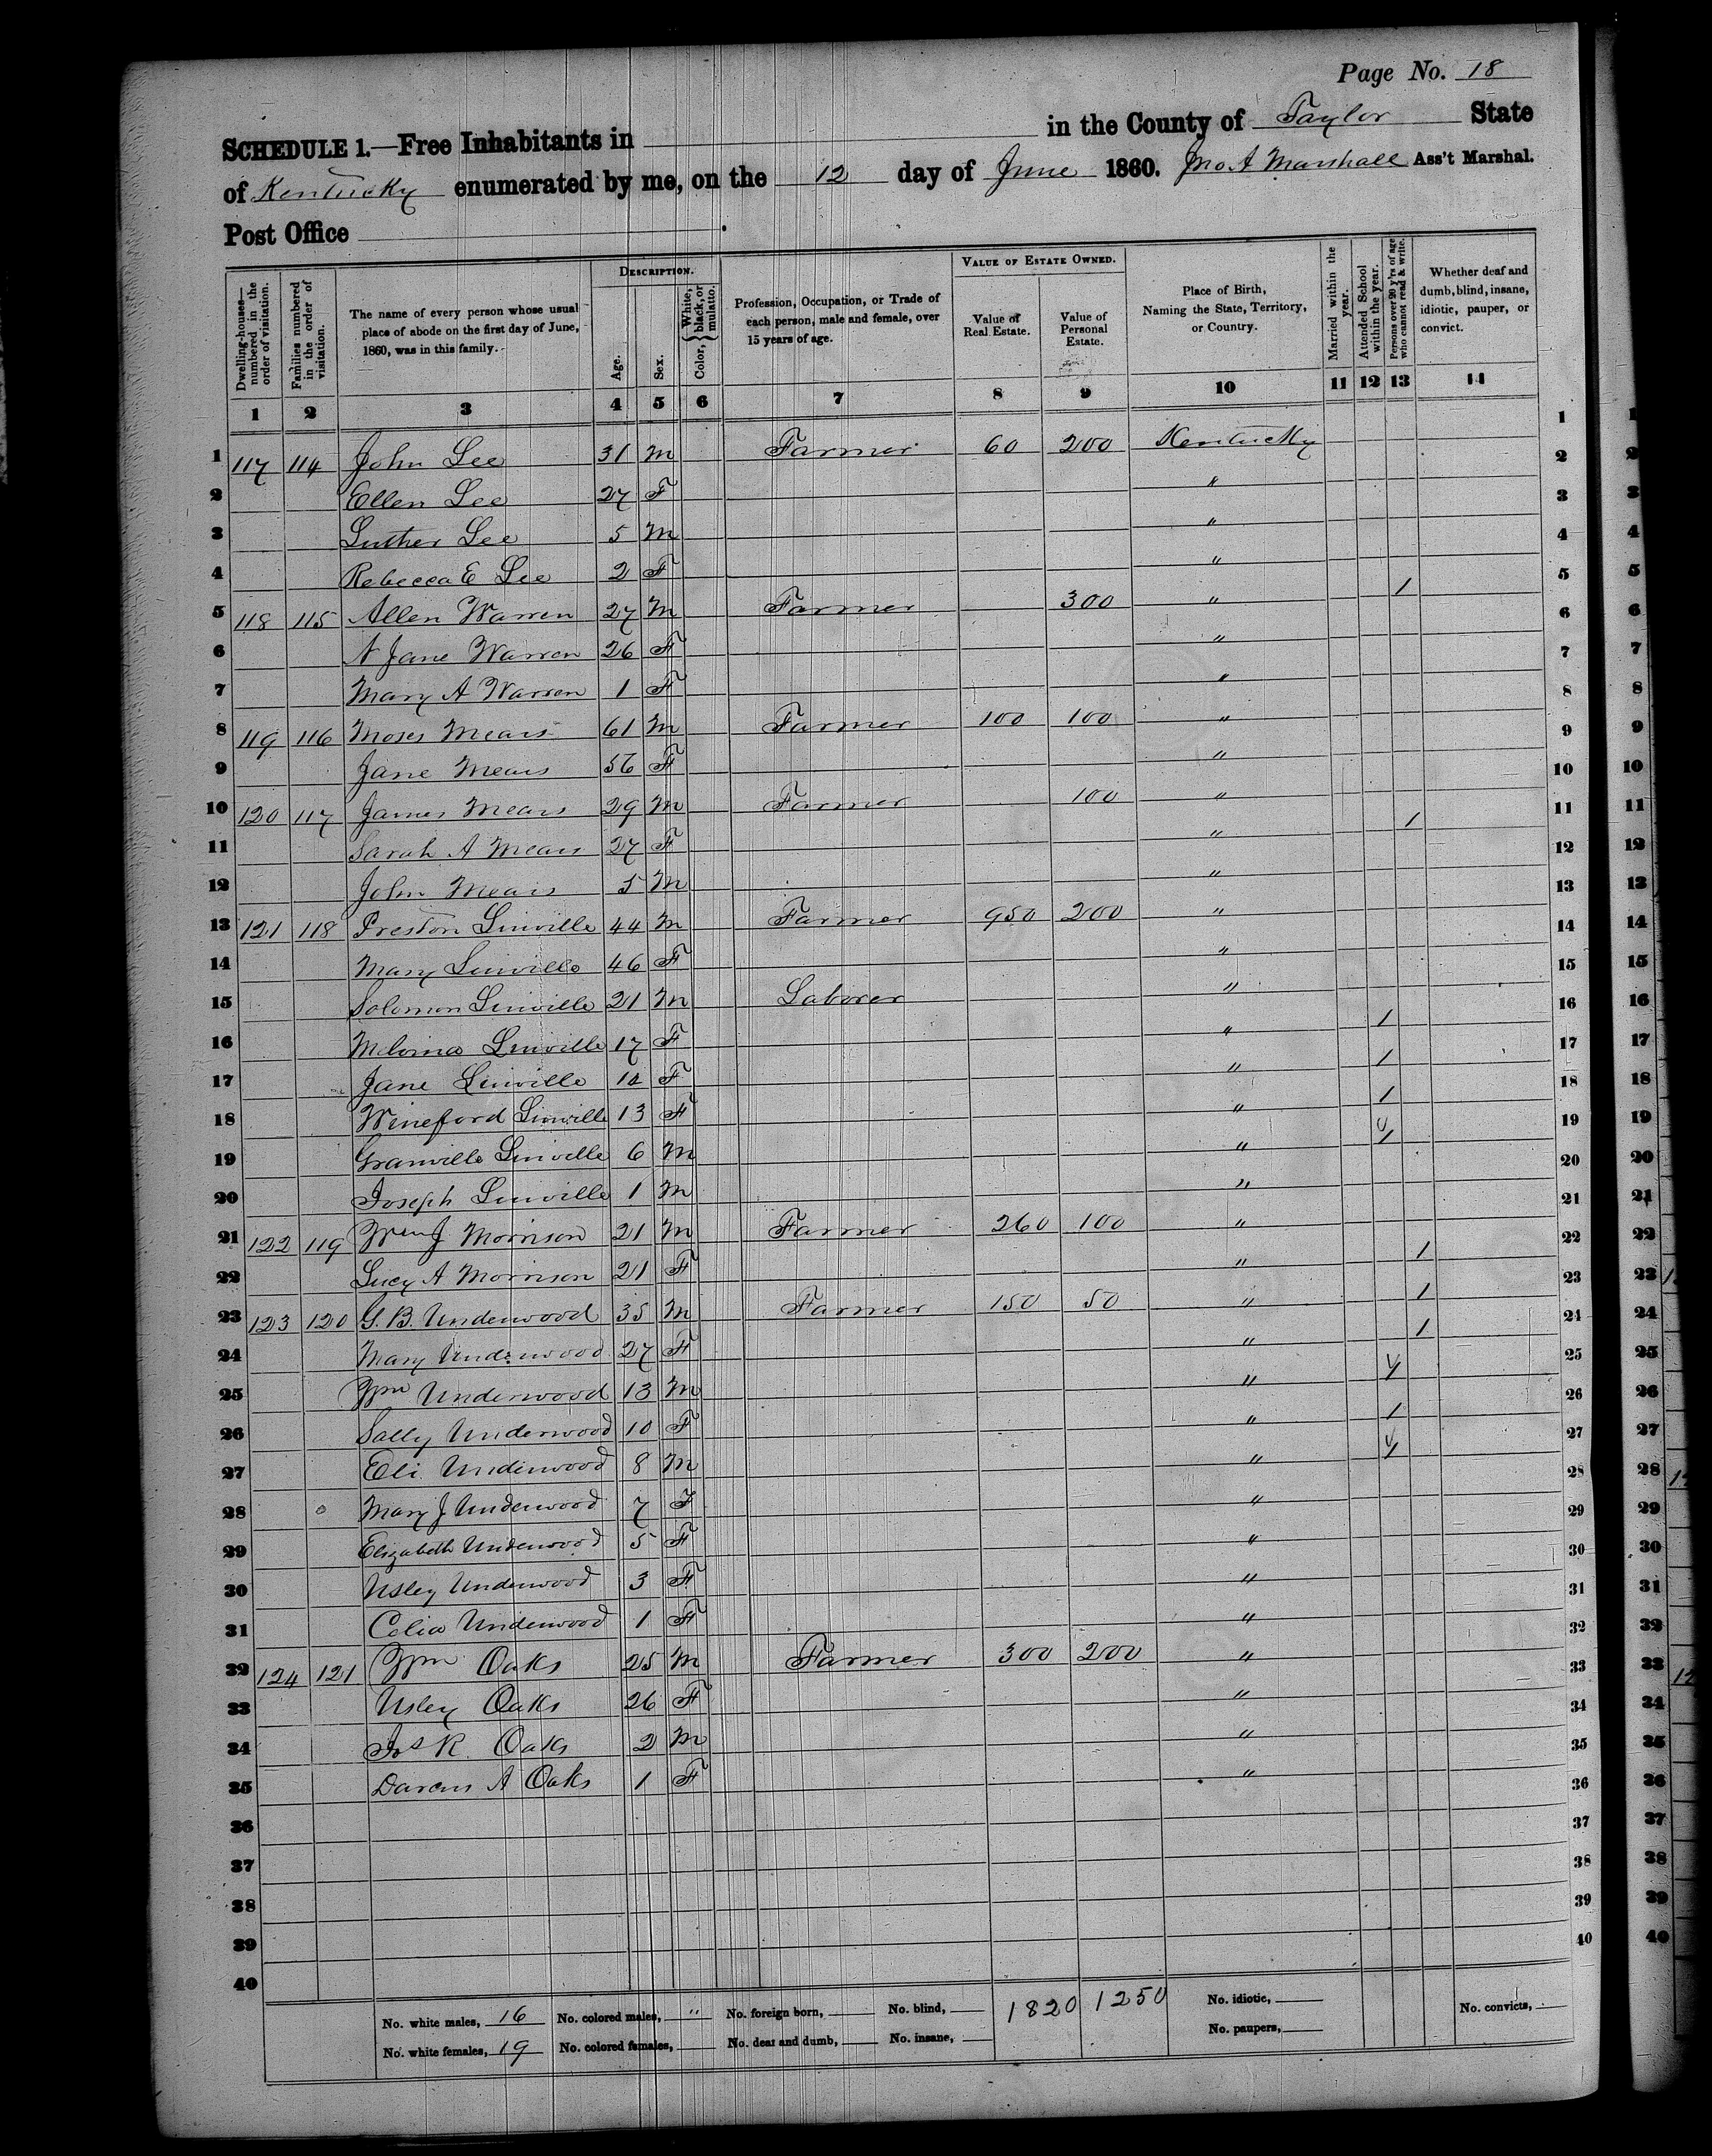 Page No. 18
SCHEDULE 1.—Free Inhabitants in in the County of Taylor State
of Kentucky enumerated by me, on the 12 day of June 1860. Jno. A Marshall Ass't Marshal.
Post Office
Dwelling-houses—numbered in the order of visitation. Families numbered in the order of visitation. The name of every person whose usual place of abode on the first day of June, 1860, was in this family. DESCRIPTION. Age. Sex. Color, { White, black, or mulatto. Profession, Occupation, or Trade of each person, male and female, over 15 years of age. VALUE OF ESTATE OWNED. Value of Real Estate. Value of Personal Estate. Place of Birth, Naming the State, Territory, or Country. Married within the year. Attended School within the year. Persons over 20 y'rs of age who cannot read & write. Whether deaf and dumb, blind, insane, idiotic, pauper, or convict.
1 2 3 4 5 6 7 8 9 10 11 12 13 14
1 117 114 John Lee 31 M Farmer 60 200 Kentucky 1
2 Ellen Lee 27 F " 2
3 Luther Lee 5 M " 3
4 Rebecca E Lee 2 F " 4
5 118 115 Allen Warren 27 M Farmer 300 " / 5
6 N Jane Warren 26 F " 6
7 Mary A Warren 1 F " 7
8 119 116 Moses Mears 61 M Farmer 100 100 " 8
9 Jane Mears 56 F " 9
10 120 117 James Mears 29 M Farmer 100 " 10
11 Sarah A Mears 27 F " / 11
12 John Mears 5 M " 12
13 121 118 Preston Linville 44 M Farmer 950 200 " 13
14 Mary Linville 46 F " 14
15 Solomon Linville 21 M Laborer " 15
16 Melvina Linville 17 F " / 16
17 Jane Linville 14 F " / 17
18 Wineford Linville 13 F " / 18
19 Granville Linville 6 M " / 19
20 Joseph Linville 1 M " 20
21 122 119 Wm J Morrison 21 M Farmer 260 100 " 21
22 Lucy A Morrison 21 F " / 22
23 123 120 G. B. Underwood 35 M Farmer 150 50 " / 23
24 Mary Underwood 27 F " / 24
25 Wm Underwood 13 M " / 25
26 Sally Underwood 10 F " / 26
27 Eli Underwood 8 M " / 27
28 Mary J Underwood 7 F " 28
29 Elizabeth Underwood 5 F " 29
30 Usley Underwood 3 F " 30
31 Celia Underwood 1 F " 31
32 124 121 Wm Oaks 25 M Farmer 300 200 " 32
33 Usley Oaks 26 F " 33
34 Jos R. Oaks 2 M " 34
35 Darcus A Oaks 1 F " 35
36 36
37 37
38 38
39 39
40 40
No. white males, 16 No. colored males, " No. foreign born, No. blind, 1820 1250 No. idiotic, No. convicts,
No. white females, 19 No. colored females, No. deaf and dumb, No. insane, No. paupers,